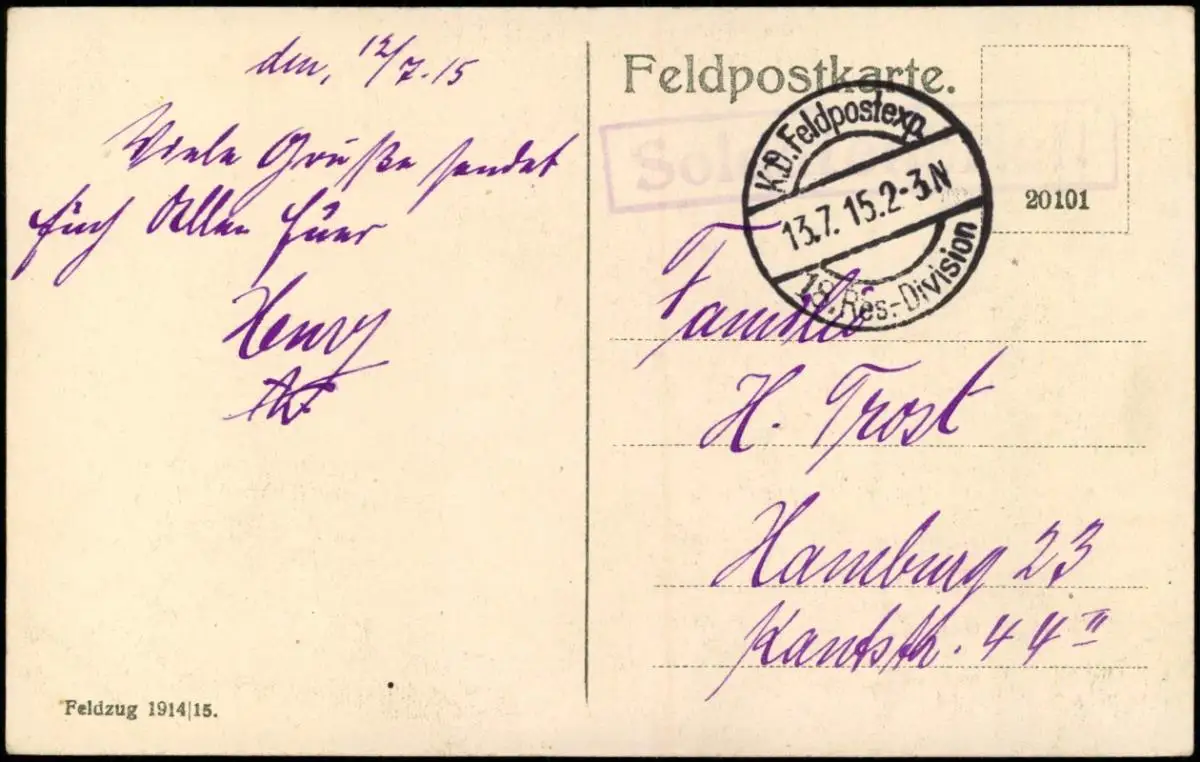 den, 12/7.15
Viele Grüße sendet
Euch Allen Euer
Henry
Feldzug 1914|15.
Feldpostkarte.
K.D.Feldpostexp.
13.7.15.2-3.N
18.Res.-Division
20101
Familie
H. Trost
Hamburg 23
Kantstr. 44 II